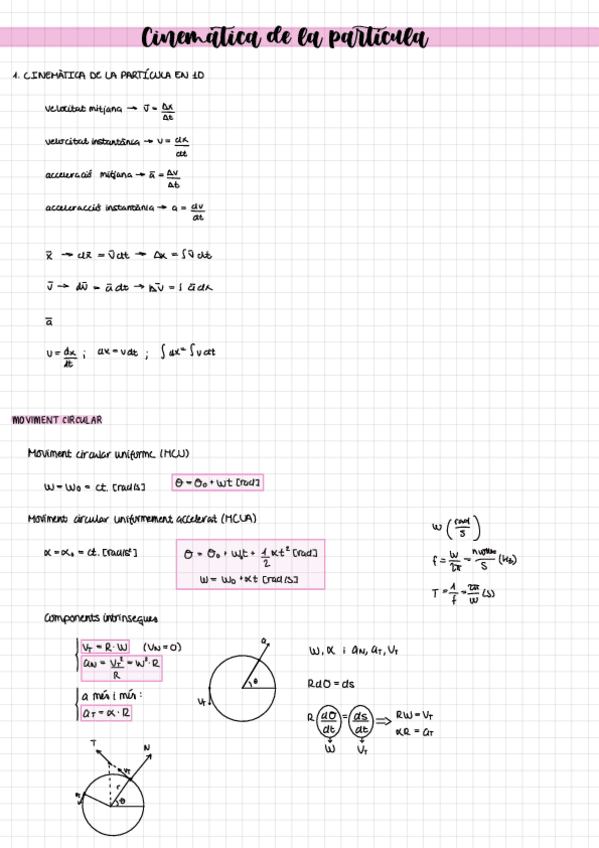 Cinemàtica de la partícula
1. CINEMÀTICA DE LA PARTÍCULA EN 1D
velocitat mitjana → v̄ = Δx/Δt
velocitat instantània → v = dx/dt
acceleració mitjana → ā = Δv/Δt
acceleracció instantània → a = dv/dt
x̄ → dx̄ = v̄dt → Δx = ∫v̄ dt
v̄ → dv̄ = ā dt → Δv̄ = ∫ ā dx
ā
v = dx/dt ; dx = vdt ; ∫dx = ∫vdt
MOVIMENT CIRCULAR
Moviment circular uniforme (MCU)
W = W₀ = ct. [rad/s]
θ = θ₀ + Wt [rad]
Moviment circular uniformement accelerat (MCUA)
α = α₀ = ct. [rad/s²]
θ = θ₀ + W₀t + 1/2 αt² [rad]
W = W₀ + αt [rad/s]
W (rad/s)
f = W/2π = nvoltes/s (Hz)
T = 1/f = 2π/W (s)
Components intrínseques
V_T = R·W (V_N = 0)
a_N = V_T²/R = W²·R
a més i més:
a_T = α·R
a
θ
V_T
W, α i a_N, a_T, V_T
Rdθ = ds
R dθ/dt = ds/dt ⇒ RW = V_T
αR = a_T
W V_T
T
N
V_T
r
θ